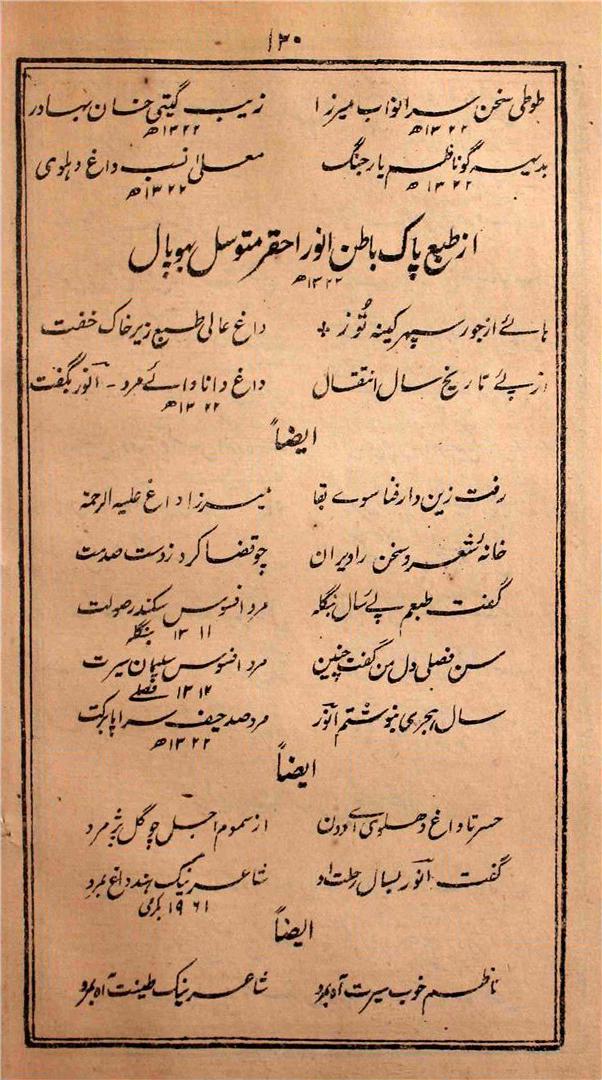 ۱۳۰
طوطی سخن سر انواب میرزا زیب گیتی خان بہادر
۱۳۲۲ھ ۱۳۲۲ھ
بدیہہ گو ناظم یار جنگ معلیٰ نسب داغ دہلوی
۱۳۲۲ھ ۱۳۲۲ھ
از طبع پاک باطن انور احقر متوسل بھوپال
۱۳۲۲ھ
ہائے از جور سپہر کینہ تُوز داغ عالی طبع زیر خاک خفت
از پئے تاریخ سال انتقال داغ دانا وائے مرد - انور بگفت
۱۳۲۲ھ
ایضاً
رفت زین دار فنا سوے بقا میرزا داغ علیہ الرحمۃ
خانۂ شعر و سخن را ویران چو قضا کرد ز دست صدمت
گفت طبعم پے سال بنگلہ مرد افسوس سکندر صولت
۱۳۱۱ بنگلہ
سن فصلی دل من گفت چنین مرد افسوس سلیمان سیرت
۱۳۱۴ فصلے
سال ہجری بنوشتم انور مرد صد حیف سراپا برکت
۱۳۲۲ھ
ایضاً
حسرتا داغ دہلوی اے دون از سموم اجل چو گل پژمرد
گفت انور بسال رحلت او شاعر نیک ہند داغ بمرد
۱۹۶۱ بکرمی
ایضاً
ناظم خوب سیرت آہ بمرد شاعر نیک طینت آہ بمرد